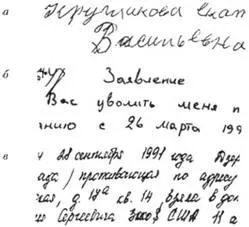 а
Кругликова Екат
Васильевна
б
Заявление
Вас уволить меня п
нию с 26 марта 199
в
28 сентября 1991 года
) проживающая по адресу
ская, д. 17а кв. 14, взяла в дол
Сергеевича 3000$ США На